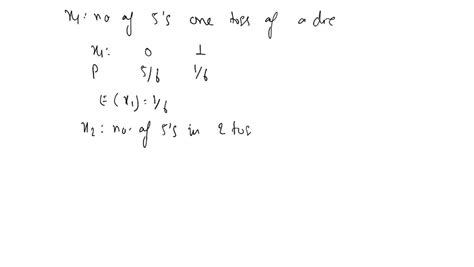 x₁: no of 5's one toss of a die
x₁: 0 1
P 5/6 1/6
E(x₁) = 1/6
x₂: no. of 5's in 2 tos